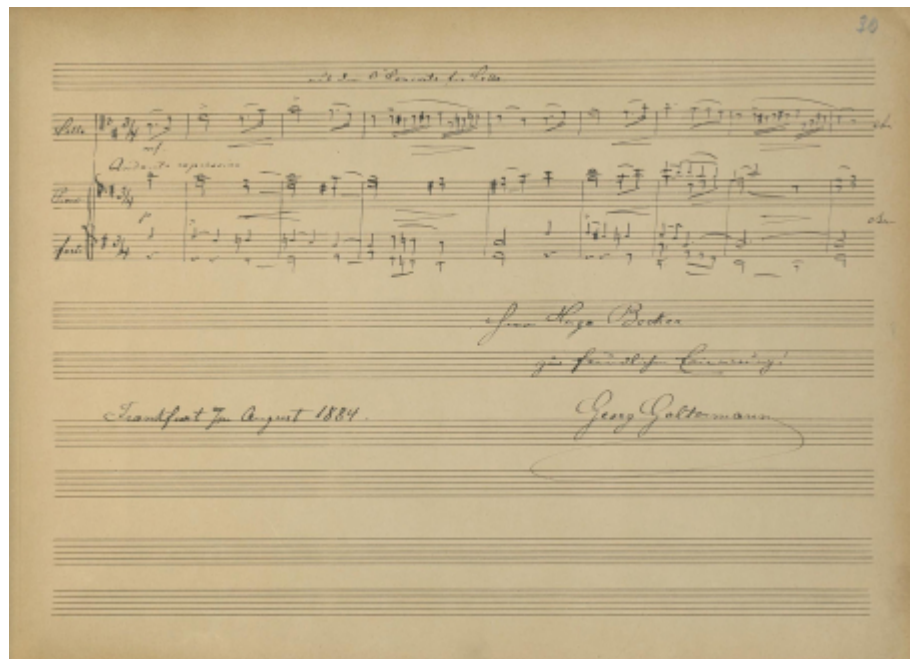 30
Concerto für Cello
Cello
mf.
etc.
Andante espressivo
Piano
p
forte
etc.
Herrn Hugo Becker
zur freundlichen Erinnerung!
Frankfurt Im August 1884.
Georg Goltermann